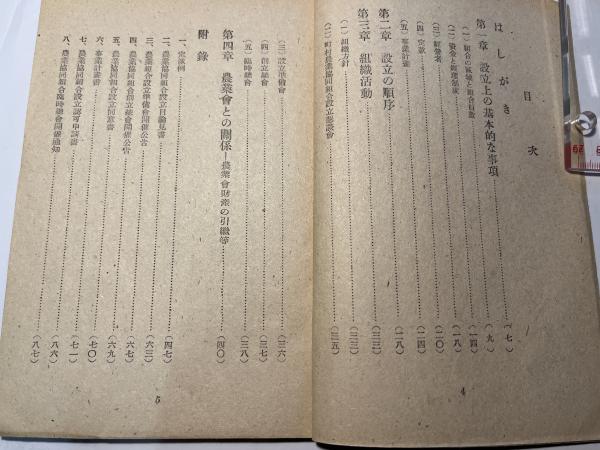 目次
はしがき……(七)
第一章 設立上の基本的な事項……(九)
(一) 組合の區域と組合員數……(一四)
(二) 資金と經理制度……(一八)
(三) 經營者……(二〇)
(四) 定款……
(五) 事業計畫……(二八)
第二章 設立の順序……(三三)
第三章 組織活動……(三三)
(一) 組織方針……(三三)
(二) 町村農業協同組合設立懇談會……(三五)
4
(三) 設立準備會……(三六)
(四) 創立總會……(三七)
(五) 臨時總會……(三八)
第四章 農業會との關係―農業會財產の引繼等……(四〇)
附錄
一、定款例
二、農業協同組合設立目論見書……(四七)
三、農業組合設立準備會開催公告……(六三)
四、農業協同組合創立總會開催公告……(六七)
五、農業協同組合設立同意書……(六九)
六、事業計畫書……(七〇)
七、農業協同組合設立認可申請書……(七一)
八、農業協同組合臨時總會開催通知……(八六)
(八七)
5